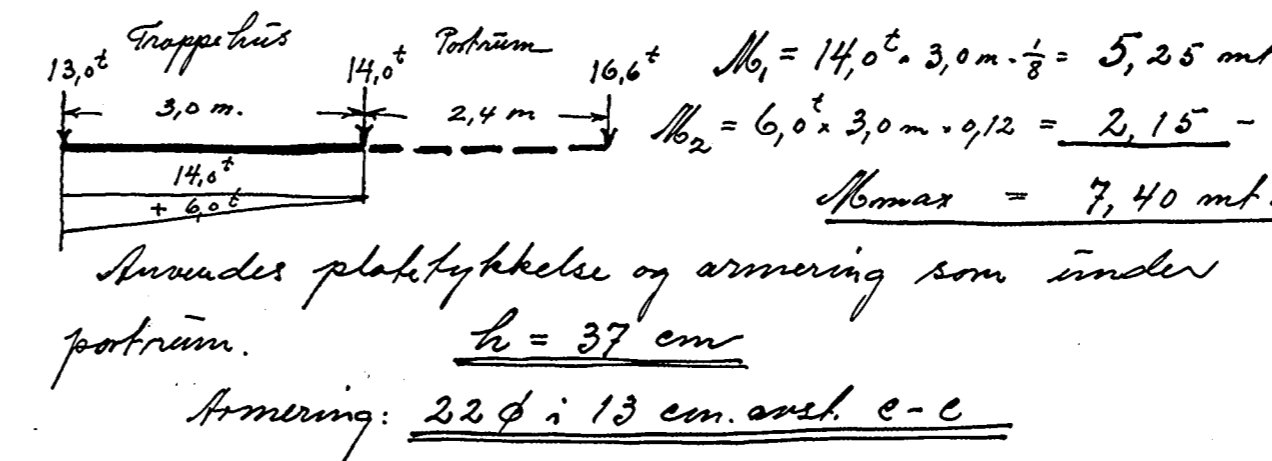 Trappehus Portrum
13,0t 14,0t 16,6t M1 = 14,0t · 3,0 m · 1/8 = 5,25 mt
3,0 m. 2,4 m M2 = 6,0t × 3,0 m · 0,12 = 2,15 -
14,0t
+ 6,0t Mmax = 7,40 mt.
Anvendes platetykkelse og armering som under
portrum. h = 37 cm
Armering: 22 ϕ i 13 cm. avst. c-c